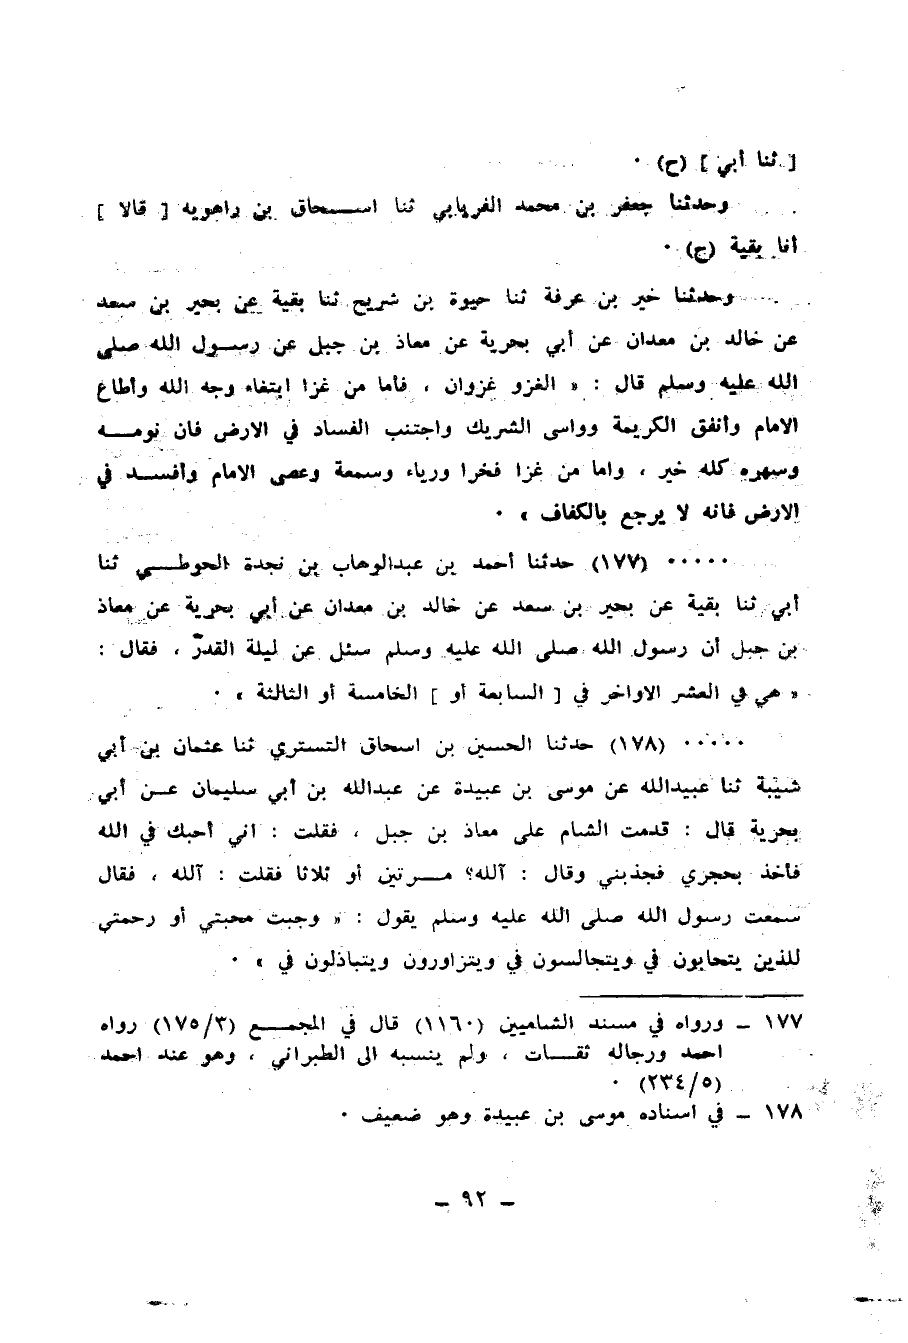 [ ثنا أبي ] (ح) ٠
وحدثنا جعفر بن محمد الفريابي ثنا اسحاق بن راهويه [ قالا ]
أنا بقية (ح) ٠
وحدثنا خير بن عرفة ثنا حيوة بن شريح ثنا بقية عن بحير بن سعد
عن خالد بن معدان عن أبي بحرية عن معاذ بن جبل عن رسول الله صلى
الله عليه وسلم قال : « الغزو غزوان ، فأما من غزا ابتغاء وجه الله وأطاع
الامام وأنفق الكريمة وواسى الشريك واجتنب الفساد في الارض فان نومه
وسهره كله خير ، واما من غزا فخرا ورياء وسمعة وعصى الامام وأفسد في
الارض فانه لا يرجع بالكفاف » ٠
٠٠٠٠٠ (١٧٧) حدثنا أحمد بن عبدالوهاب بن نجدة الحوطي ثنا
أبي ثنا بقية عن بحير بن سعد عن خالد بن معدان عن أبي بحرية عن معاذ
بن جبل أن رسول الله صلى الله عليه وسلم سئل عن ليلة القدر ، فقال :
« هي في العشر الاواخر في [ السابعة أو ] الخامسة أو الثالثة » ٠
٠٠٠٠٠ (١٧٨) حدثنا الحسين بن اسحاق التستري ثنا عثمان بن أبي
شيبة ثنا عبيدالله عن موسى بن عبيدة عن عبدالله بن أبي سليمان عن أبي
بحرية قال : قدمت الشام على معاذ بن جبل ، فقلت : اني أحبك في الله
فأخذ بحجزي فجذبني وقال : آلله؟ مرتين أو ثلاثا فقلت : آلله ، فقال
سمعت رسول الله صلى الله عليه وسلم يقول : « وجبت محبتي أو رحمتي
للذين يتحابون في ويتجالسون في ويتزاورون ويتباذلون في » ٠
١٧٧ ـ ورواه في مسند الشاميين (١١٦٠) قال في المجمع (١٧٥/٣) رواه
احمد ورجاله ثقات ، ولم ينسبه الى الطبراني ، وهو عند احمد
(٢٣٤/٥) ٠
١٧٨ ـ في اسناده موسى بن عبيدة وهو ضعيف ٠
ـ ٩٢ ـ